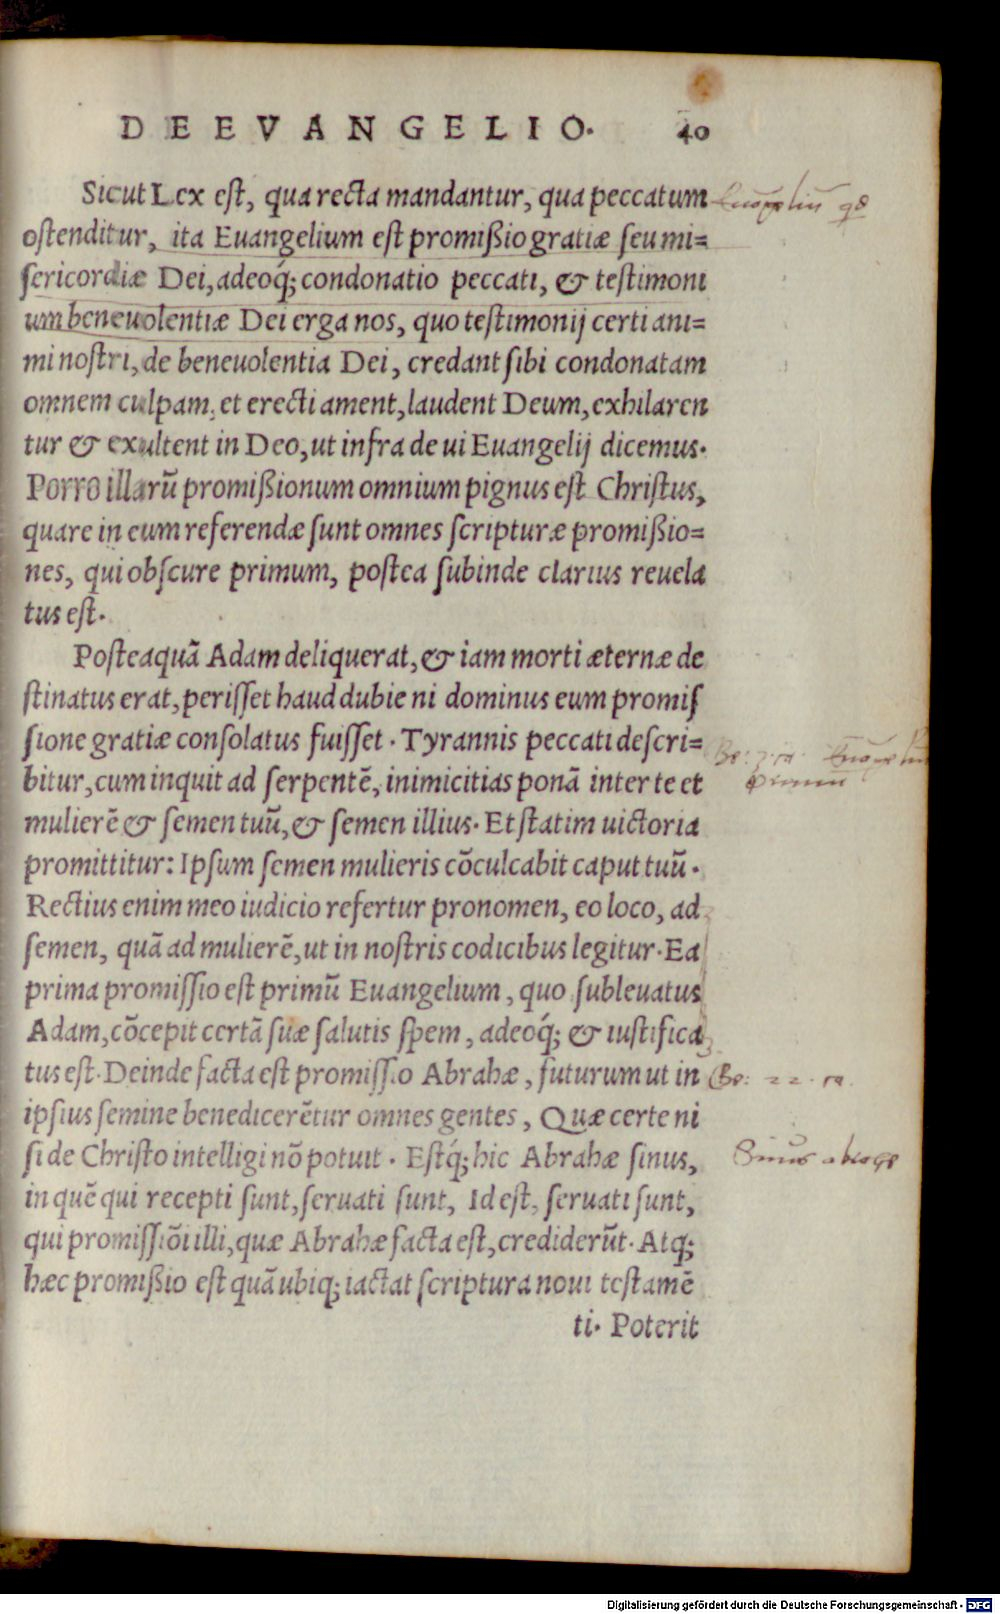 DE EVANGELIO. 40
Sicut Lex est, qua recta mandantur, qua peccatum
ostenditur, ita Euangelium est promißio gratiæ seu mi=
sericordiæ Dei, adeoq́; condonatio peccati, & testimoni
um beneuolentiæ Dei erga nos, quo testimonij certi ani=
mi nostri, de beneuolentia Dei, credant sibi condonatam
omnem culpam, et erecti ament, laudent Deum, exhilaren
tur & exultent in Deo, ut infra de ui Euangelij dicemus.
Porro illarū promißionum omnium pignus est Christus,
quare in eum referendæ sunt omnes scripturæ promißio=
nes, qui obscure primum, postea subinde clarius reuela
tus est.
Posteaquā Adam deliquerat, & iam morti æternæ de
stinatus erat, perisset haud dubie ni dominus eum promis
sione gratiæ consolatus fuisset. Tyrannis peccati descri=
bitur, cum inquit ad serpentē, inimicitias ponā inter te et
mulierē & semen tuū, & semen illius. Et statim uictoria
promittitur: Ipsum semen mulieris cōculcabit caput tuū.
Rectius enim meo iudicio refertur pronomen, eo loco, ad
semen, quā ad mulierē, ut in nostris codicibus legitur. Ea
prima promissio est primū Euangelium, quo subleuatus
Adam, cōcepit certā suæ salutis spem, adeoq́; & iustifica
tus est. Deinde facta est promissio Abrahæ, futurum ut in
ipsius semine benedicerētur omnes gentes, Quæ certe ni
si de Christo intelligi nō potuit. Estq́; hic Abrahæ sinus,
in quē qui recepti sunt, seruati sunt, Id est, seruati sunt,
qui promissiōi illi, quæ Abrahæ facta est, crediderūt. Atq;
hæc promißio est quā ubiq; iactat scriptura noui testamē
ti. Poterit
Ge: 22.
Sinus
Digitalisierung gefördert durch die Deutsche Forschungsgemeinschaft - DFG